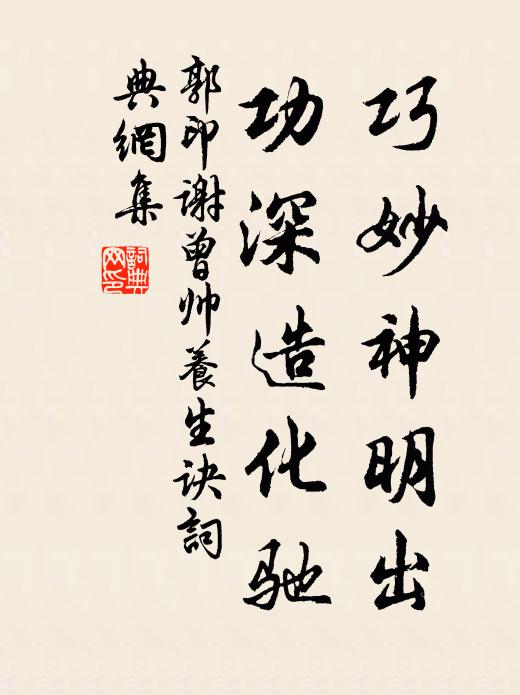 巧妙神明出
功深造化驰
郭印谢曾帅養生诀詞
典網集
詞典
网印